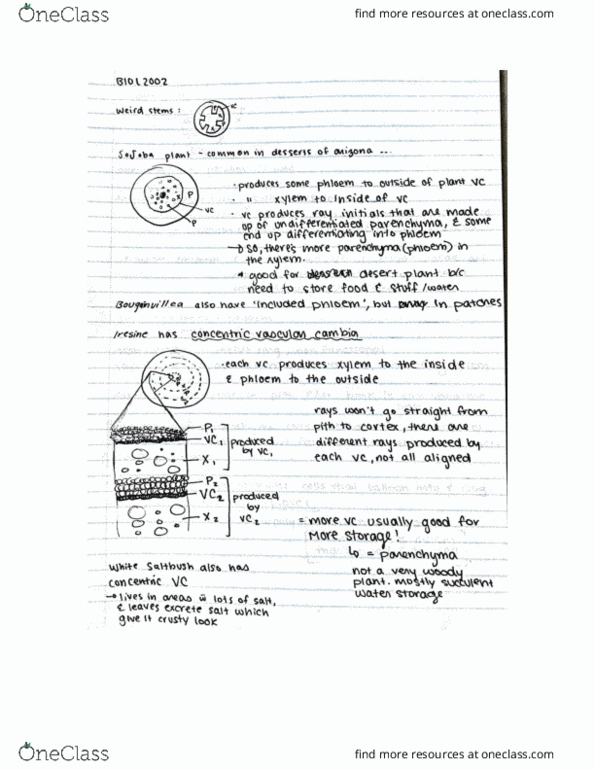 OneClass
find more resources at oneclass.com
BIOL2002
weird stems:
vc
JoJoba plant - common in desserts of arizona ...
P
vc
P
• produces some phloem to outside of plant VC
• " xylem to inside of VC
• VC produces ray initials that are made
up of undifferentiated parenchyma, & some
end up differentiating into phloem
↳ so, there's more parenchyma (phloem) in
the xylem.
* good for desert plant b/c
need to store food & stuff/water
Bouganvillea also have 'included phloem', but in patches
Iresine has concentric vascular cambia
• each VC produces xylem to the inside
& phloem to the outside
rays won't go straight from
pith to cortex, there are
different rays produced by
each VC, not all aligned
P1
VC1
X1
produced
by VC1
P2
VC2
X2
produced
by
VC2
= more VC usually good for
more storage!
↳ = parenchyma
not a very woody
plant. mostly succulent
water storage
White Saltbush also has
concentric VC
→ lives in areas w̄ lots of salt,
& leaves excrete salt which
give it crusty look
OneClass
find more resources at oneclass.com